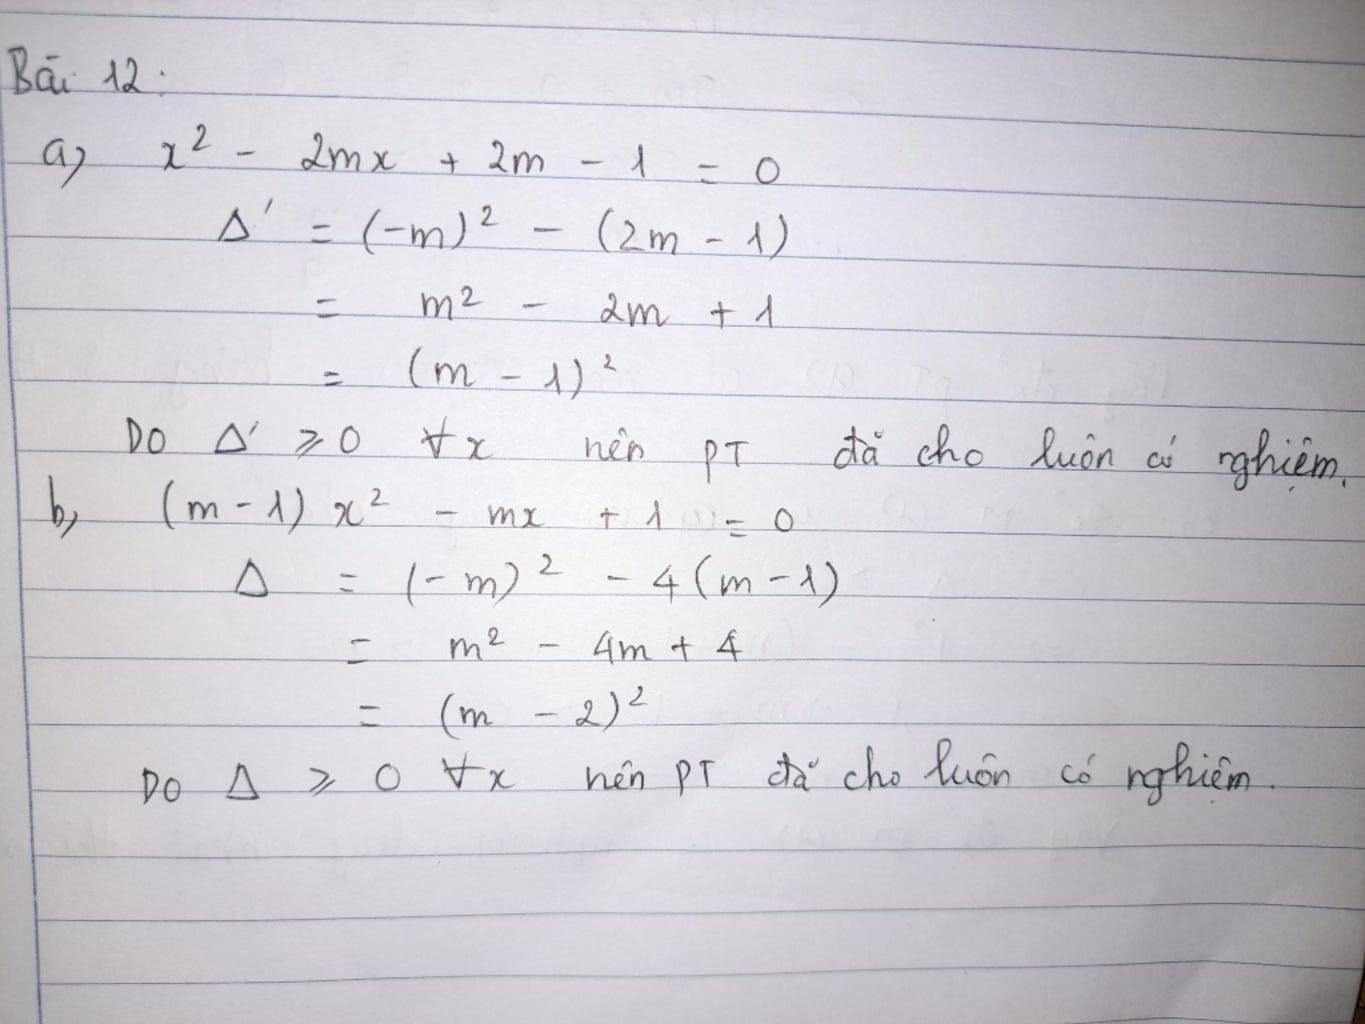 Bài 12:
a, x² - 2mx + 2m - 1 = 0
Δ' = (-m)² - (2m - 1)
= m² - 2m + 1
= (m - 1)²
Do Δ' ⩾ 0 ∀x nên PT đã cho luôn có nghiệm.
b, (m - 1) x² - mx + 1 = 0
Δ = (-m)² - 4(m - 1)
= m² - 4m + 4
= (m - 2)²
Do Δ ⩾ 0 ∀x nên PT đã cho luôn có nghiệm.